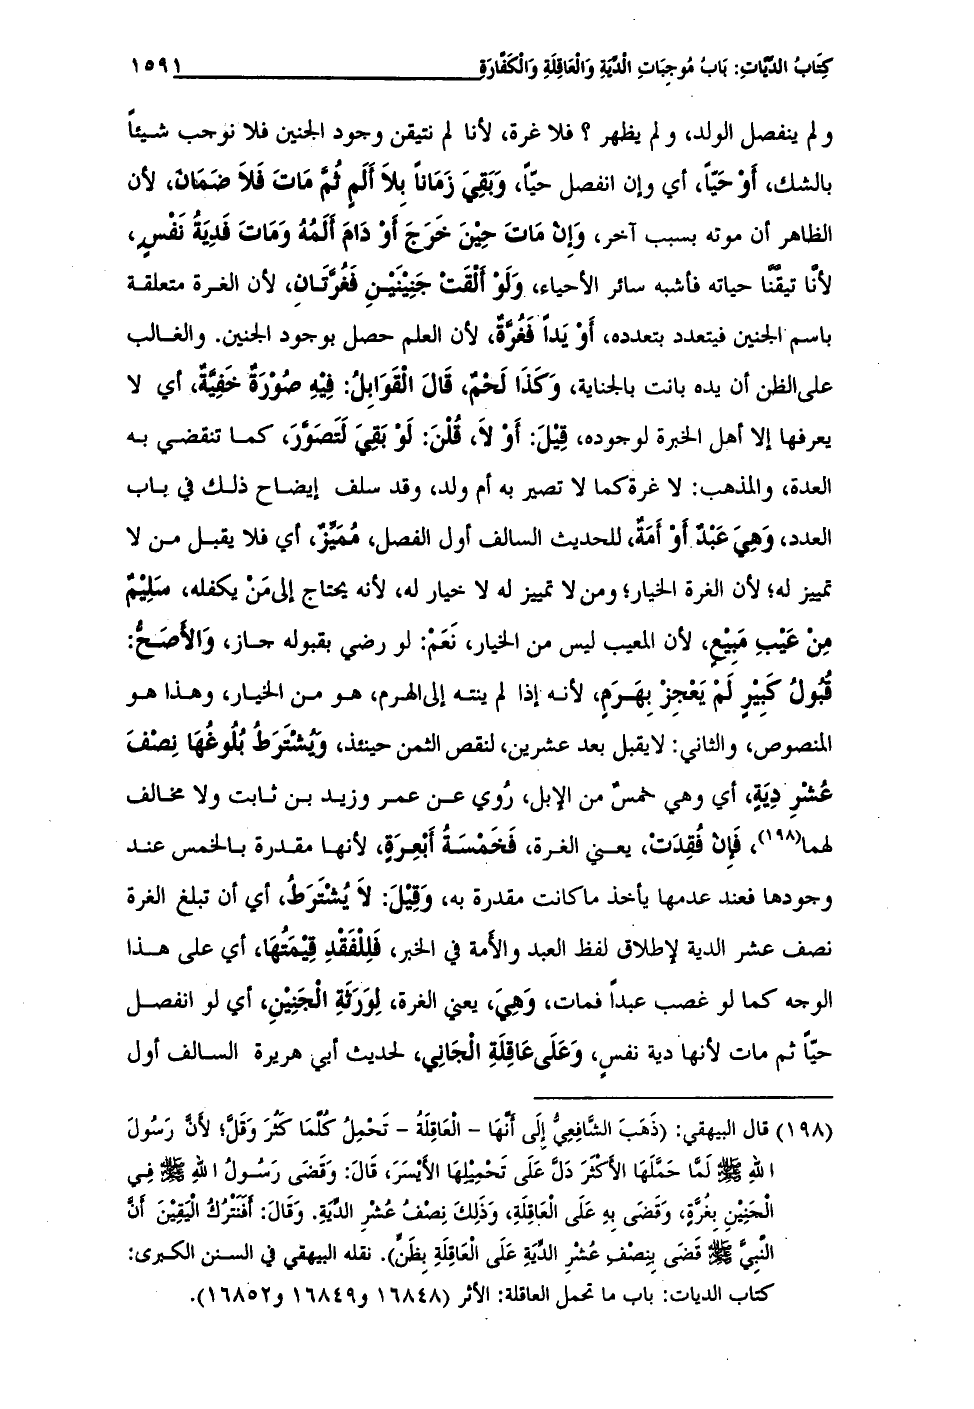 كِتَابُ الدِّيَاتِ: بَابُ مُوجِبَاتِ الْدِّيَةِ وَالْعَاقِلَةِ وَالْكَفَّارَةِ ١٥٩١
ولم ينفصل الولد، ولم يظهر ؟ فلا غرة، لأنا لم نتيقن وجود الجنين فلا نوجب شيئاً
بالشك، أَوْ حَيّاً، أي وإن انفصل حيّاً، وَبَقِيَ زَمَاناً بِلاَ أَلَمٍ ثُمَّ مَاتَ فَلاَ ضَمَانَ، لأن
الظاهر أن موته بسبب آخر، وَإِنْ مَاتَ حِيْنَ خَرَجَ أَوْ دَامَ أَلَمُهُ وَمَاتَ فَدِيَةُ نَفْسٍ،
لأنَّا تيقنَّا حياته فأشبه سائر الأحياء، وَلَوْ أَلْقَتْ جَنِيْنَيْنِ فَغُرَّتَانِ، لأن الغرة متعلقة
باسم الجنين فيتعدد بتعدده، أَوْ يَداً فَغُرَّةٌ، لأن العلم حصل بوجود الجنين. والغالب
على الظن أن يده بانت بالجناية، وَكَذَا لَحْمٌ، قَالَ الْقَوَابِلُ: فِيْهِ صُوْرَةٌ خَفِيَّةٌ، أي لا
يعرفها إلا أهل الخبرة لوجوده، قِيْلَ: أَوْ لاَ، قُلْنَ: لَوْ بَقِيَ لَتَصَوَّرَ، كما تنقضي به
العدة، والمذهب: لا غرة كما لا تصير به أم ولد، وقد سلف إيضاح ذلك في باب
العدد، وَهِيَ عَبْدٌ أَوْ أَمَةٌ، للحديث السالف أول الفصل، مُمَيِّزٌ، أي فلا يقبل من لا
تمييز له؛ لأن الغرة الخيار؛ ومن لا تمييز له لا خيار له، لأنه يحتاج إلى مَنْ يكفله، سَلِيْمٌ
مِنْ عَيْبِ مَبِيْعٍ، لأن المعيب ليس من الخيار، نَعَمْ: لو رضي بقبوله جاز، وَالأَصَحُّ:
قُبُولُ كَبِيْرٍ لَمْ يَعْجِزْ بِهَرَمٍ، لأنه إذا لم ينته إلى الهرم، هو من الخيار، وهذا هو
المنصوص، والثاني: لا يقبل بعد عشرين، لنقص الثمن حينئذ، وَيُشْتَرَطُ بُلُوغُهَا نِصْفَ
عُشْرِ دِيَةٍ، أي وهي خمسٌ من الإبل، رُوي عن عمر وزيد بن ثابت ولا مخالف
لهما(١٩٨)، فَإِنْ فُقِدَتْ، يعني الغرة، فَخَمْسَةُ أَبْعِرَةٍ، لأنها مقدرة بالخمس عند
وجودها فعند عدمها يأخذ ما كانت مقدرة به، وَقِيْلَ: لاَ يُشْتَرَطُ، أي أن تبلغ الغرة
نصف عشر الدية لإطلاق لفظ العبد والأمة في الخبر، فَلِلْفَقْدِ قِيْمَتُهَا، أي على هذا
الوجه كما لو غصب عبداً فمات، وَهِيَ، يعني الغرة، لِوَرَثَةِ الْجَنِيْنِ، أي لو انفصل
حيّاً ثم مات لأنها دية نفسٍ، وَعَلَى عَاقِلَةِ الْجَانِي، لحديث أبي هريرة السالف أول
(١٩٨) قال البيهقي: (ذَهَبَ الشَّافِعِيُّ إِلَى أَنَّهَا - الْعَاقِلَةُ - تَحْمِلُ كُلَّمَا كَثُرَ وَقَلَّ؛ لأَنَّ رَسُولَ
اللهِ ﷺ لَمَّا حَمَّلَهَا الأَكْثَرَ دَلَّ عَلَى تَحْمِيْلِهَا الأَيْسَرَ، قَالَ: وَقَضَى رَسُولُ اللهِ ﷺ فِي
الْجَنِيْنِ بِغُرَّةٍ، وَقَضَى بِهِ عَلَى الْعَاقِلَةِ، وَذَلِكَ نِصْفُ عُشْرِ الدِّيَةِ. وَقَالَ: أَفَنَتْرُكُ الْيَقِيْنَ أَنَّ
النَّبِيَّ ﷺ قَضَى بِنِصْفِ عُشْرِ الدِّيَةِ عَلَى الْعَاقِلَةِ بِظَنٍّ). نقله البيهقي في السنن الكبرى:
كتاب الديات: باب ما تحمل العاقلة: الأثر (١٦٨٤٨ و١٦٨٤٩ و١٦٨٥٢).